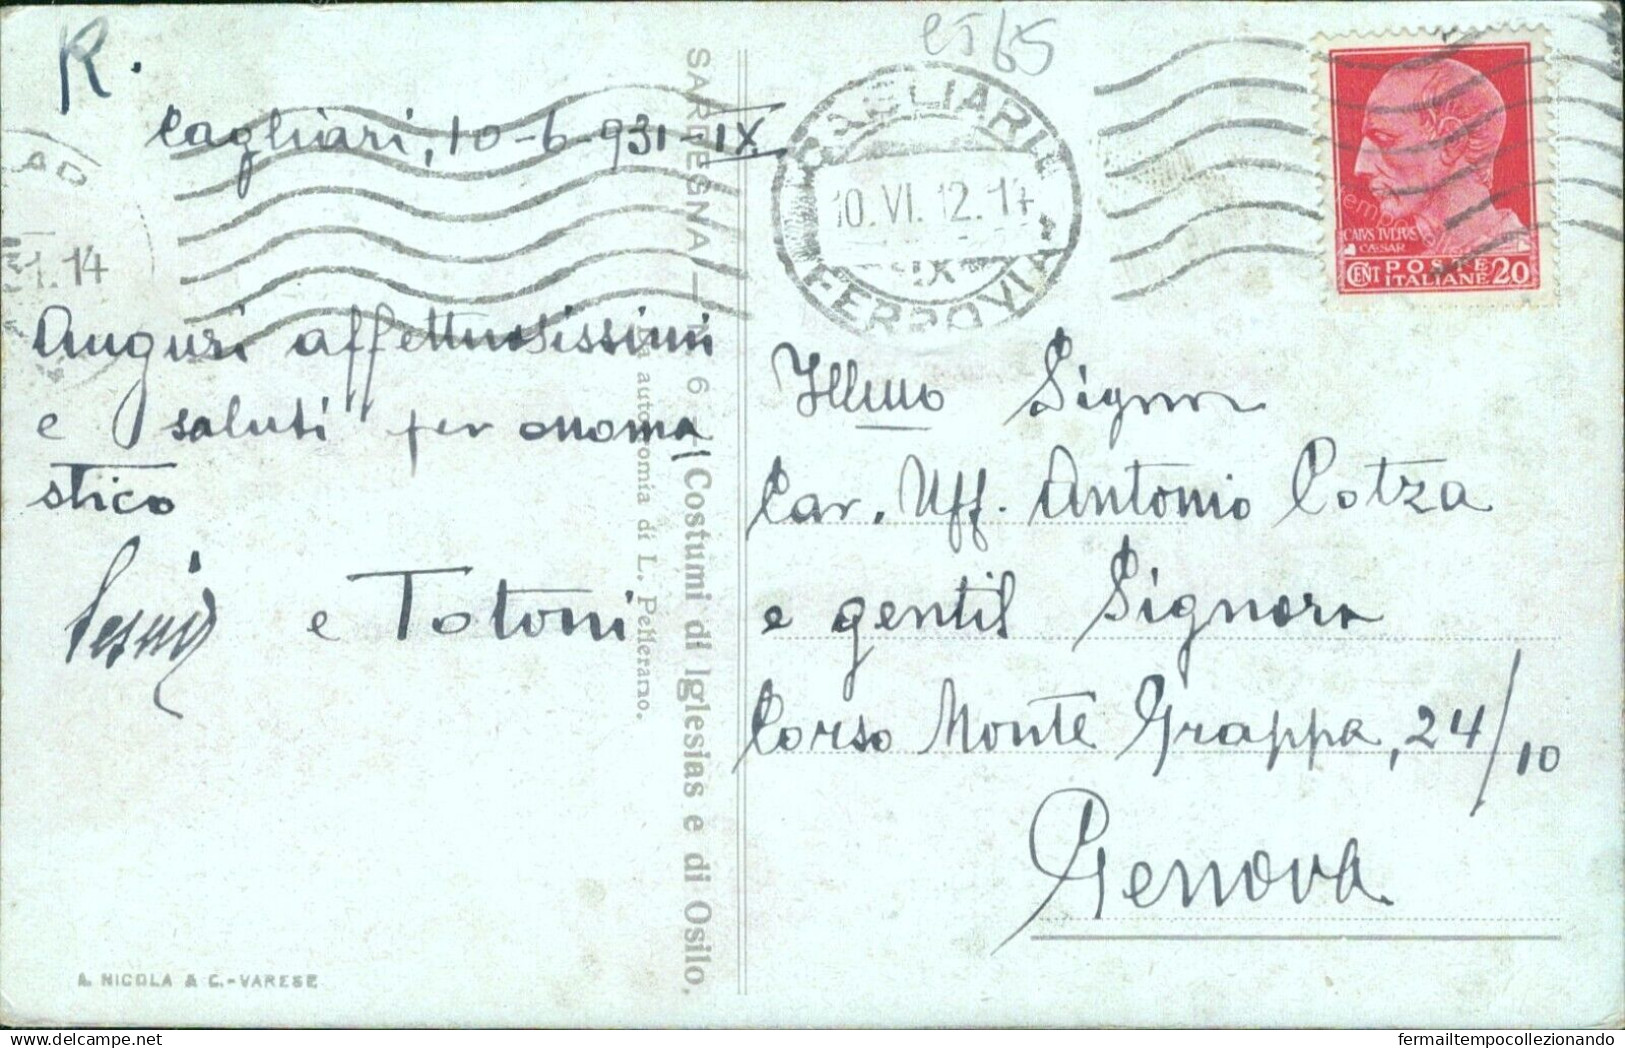 R.
et 65
Cagliari, 10-6-931-IX
CAGLIARI
10.VI.12.14
IX
FERROVIA
1.14
CAIVS IVLIVS
CAESAR
CENT POSTE ITALIANE 20
Auguri affettuosissimi
e saluti per onoma
stico
e Totoni
SARDEGNA - N. 6 - Costumi di Iglesias e di Osilo.
Da autocromia di L. Pellerano.
Illmo Signor
Cav. Uff. Antonio Cotza
e gentil Signora
Corso Monte Grappa, 24/10
Genova
A. NICOLA & C.-VARESE
fermailtempocollezionando